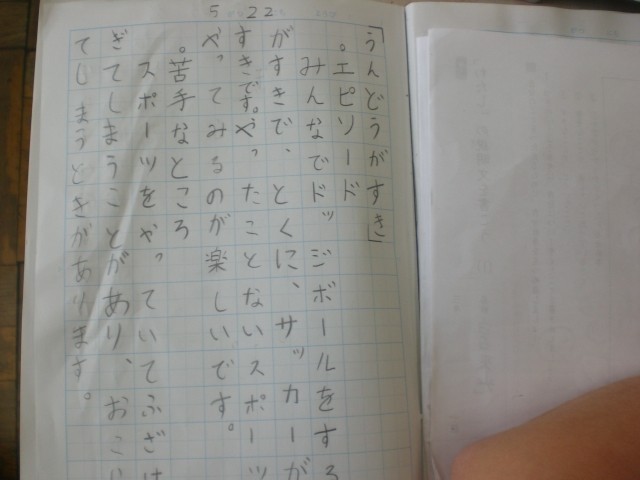 5 22
「うんどうがすき」
。エピソード
みんなでドッジボールをする
がすきで、とくに、サッカーが
すきです。やったことないスポーツ
やってみるのが楽しいです。
。苦手なところ
スポーツをやっていてふざけ
ぎてしまうことがあり、おこ
てしまうときがあります。